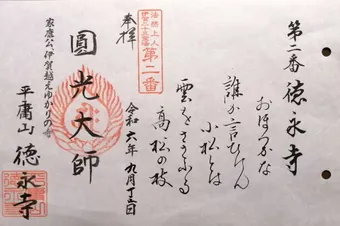 第二番 徳永寺
おほつかな
誰か言ひけん
小松とは
雲をさゝふる
高松の枝
令和六年九月十五日
奉拝
法然上人
第二番
圓光大師
家康公、伊賀越えゆかりの寺
平庸山 徳永寺